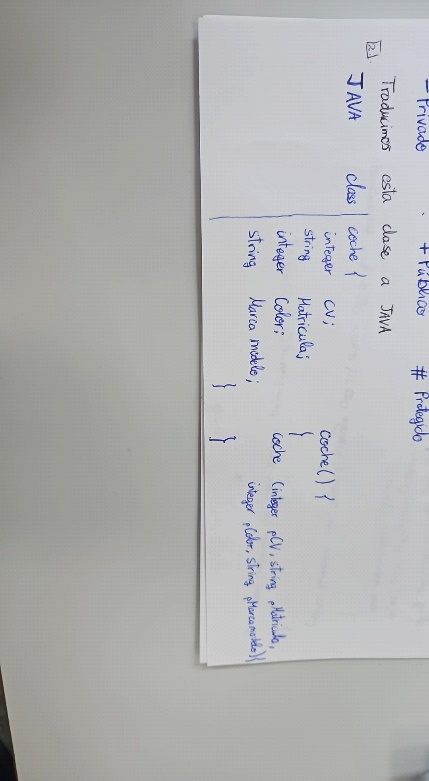 - Privado . + Público # Protegido
[2]. Traducimos esta clase a JAVA
JAVA class coche {
integer CV;
string Matricula;
integer Color;
string Marca modelo;
}
coche() {
}
coche (integer pCV, string pMatricula,
integer pColor, string pMarcamodelo){
}